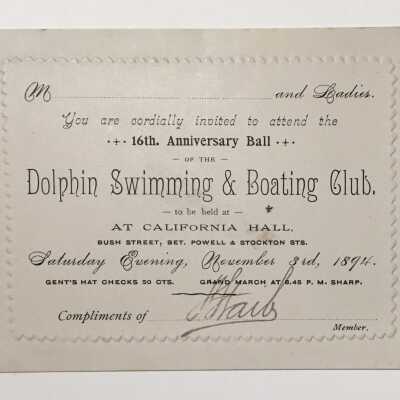 M and Ladies.
You are cordially invited to attend the
16th. Anniversary Ball
OF THE
Dolphin Swimming & Boating Club.
to be held at
AT CALIFORNIA HALL,
BUSH STREET, BET. POWELL & STOCKTON STS.
Saturday Evening, November 3rd, 1894.
GENT'S HAT CHECKS 50 CTS. GRAND MARCH AT 8.45 P. M. SHARP.
Compliments of
Member.